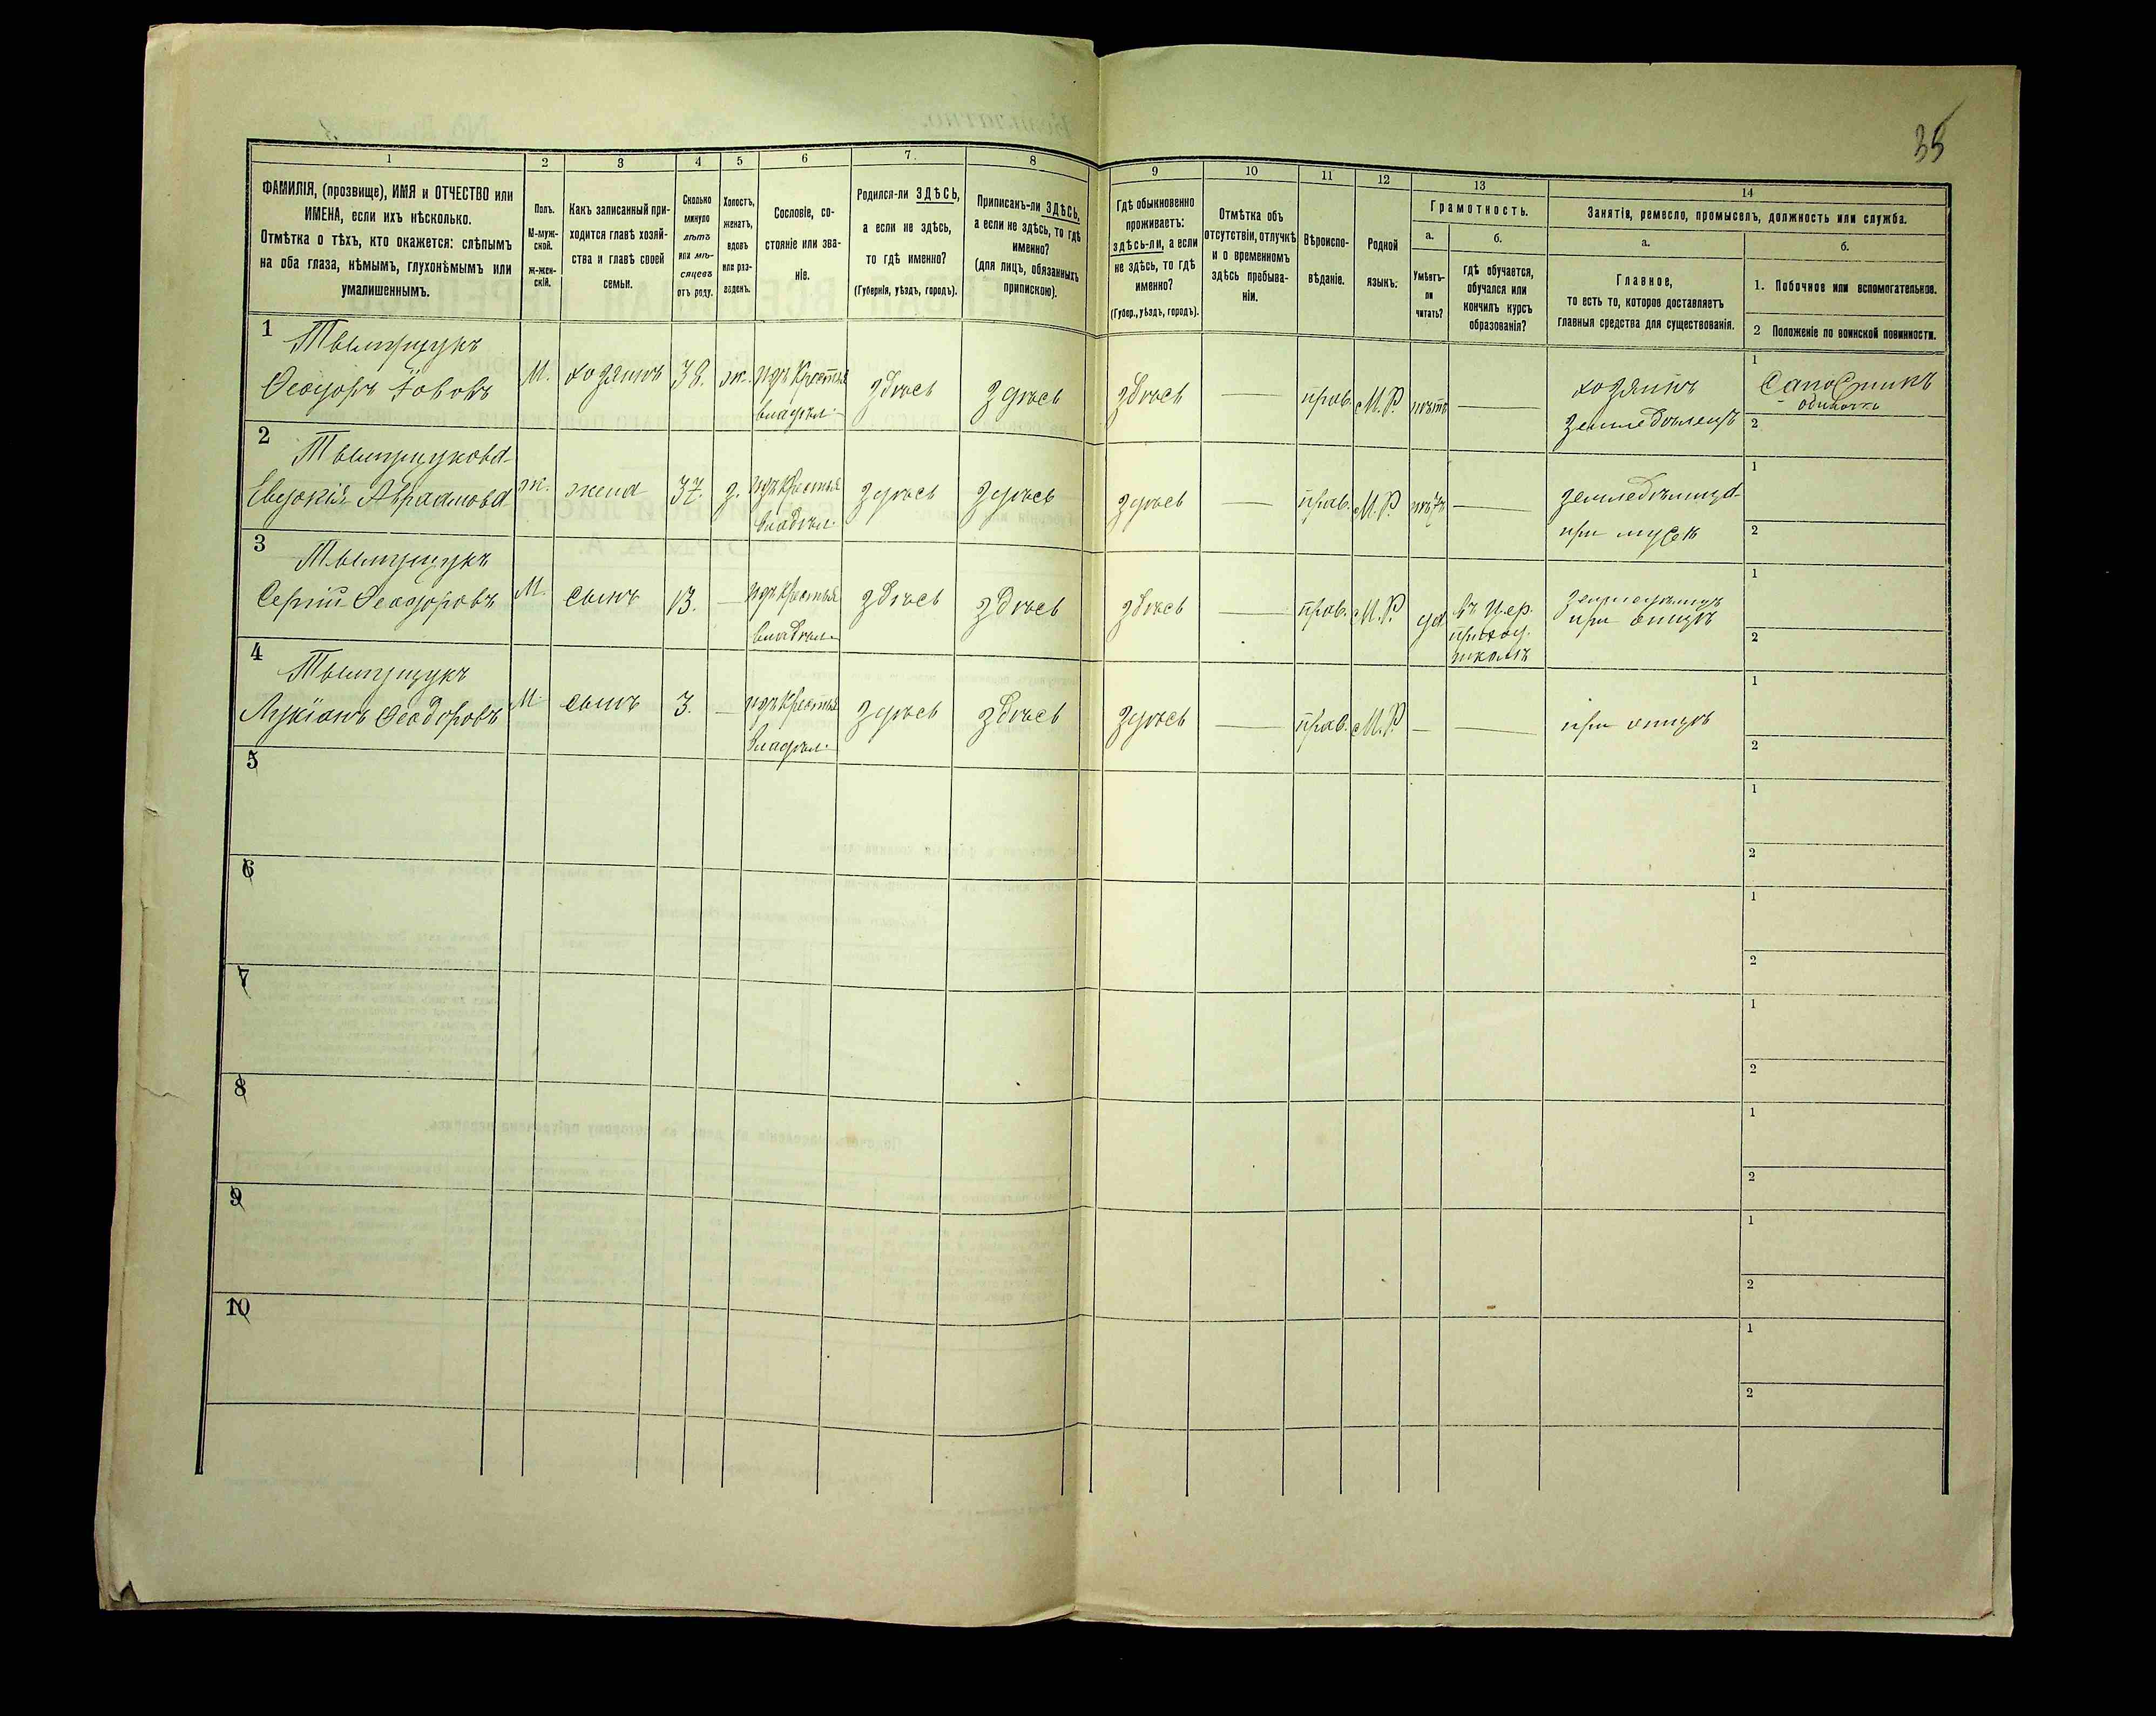 35
1
2
3
4
5
6
7.
8
9
10
11
12
13
14
ФАМИЛІЯ, (прозвище), ИМЯ и ОТЧЕСТВО или
ИМЕНА, если ихъ нѣсколько.
Отмѣтка о тѣхъ, кто окажется: слѣпымъ
на оба глаза, нѣмымъ, глухонѣмымъ или
умалишеннымъ.
Полъ.
М-муж-
ской.
ж-жен-
скій.
Какъ записанный при-
ходится главѣ хозяй-
ства и главѣ своей
семьи.
Сколько
минуло
лѣтъ
или мѣ-
сяцевъ
отъ роду.
Холостъ,
женатъ,
вдовъ
или раз-
веденъ.
Сословіе, со-
стояніе или зва-
ніе.
Родился-ли ЗДѢСЬ,
а если не здѣсь,
то гдѣ именно?
(Губернія, уѣздъ, городъ).
Приписанъ-ли ЗДѢСЬ,
а если не здѣсь, то гдѣ
именно?
(для лицъ, обязанныхъ
припискою).
Гдѣ обыкновенно
проживаетъ:
здѣсь-ли, а если
не здѣсь, то гдѣ
именно?
(Губер., уѣздъ, городъ).
Отмѣтка объ
отсутствіи, отлучкѣ
и о временномъ
здѣсь пребыва-
ніи.
Вѣроиспо-
вѣданіе.
Родной
языкъ.
Грамотность.
а.
Умѣетъ-
ли
читать?
б.
гдѣ обучается,
обучался или
кончилъ курсъ
образованія?
Занятія, ремесло, промыселъ, должность или служба.
а.
Главное,
то есть то, которое доставляетъ
главныя средства для существованія.
б.
1. Побочное или вспомогательное.
2 Положеніе по воинской повинности.
1
Ѳеодоръ Іововъ
М.
хозяинъ
38.
ж.
изъ Крестья
владѣл.
здѣсь
здѣсь
здѣсь
прав.
М.Р.
нѣтъ
хозяинъ
земледѣлецъ
1
Сапожникъ
одиночка
2
2
Евдокія Авраамова
ж.
жена
37.
з.
изъ Крестья
владѣл.
здѣсь
здѣсь
здѣсь
прав.
М.Р.
нѣтъ
земледѣлица
при мужѣ
1
2
3
Сергій Ѳеодоровъ
М.
сынъ
13.
изъ Крестья
владѣл.
здѣсь
здѣсь
здѣсь
прав.
М.Р.
да
въ цер.
приход.
школѣ
при отцѣ
1
2
4
Лукіанъ Ѳеодоровъ
М
сынъ
3.
изъ Крестья
владѣл.
здѣсь
здѣсь
здѣсь
прав.
М.Р.
при отцѣ
1
2
5
1
2
6
1
2
7
1
2
8
1
2
9
1
2
10
1
2